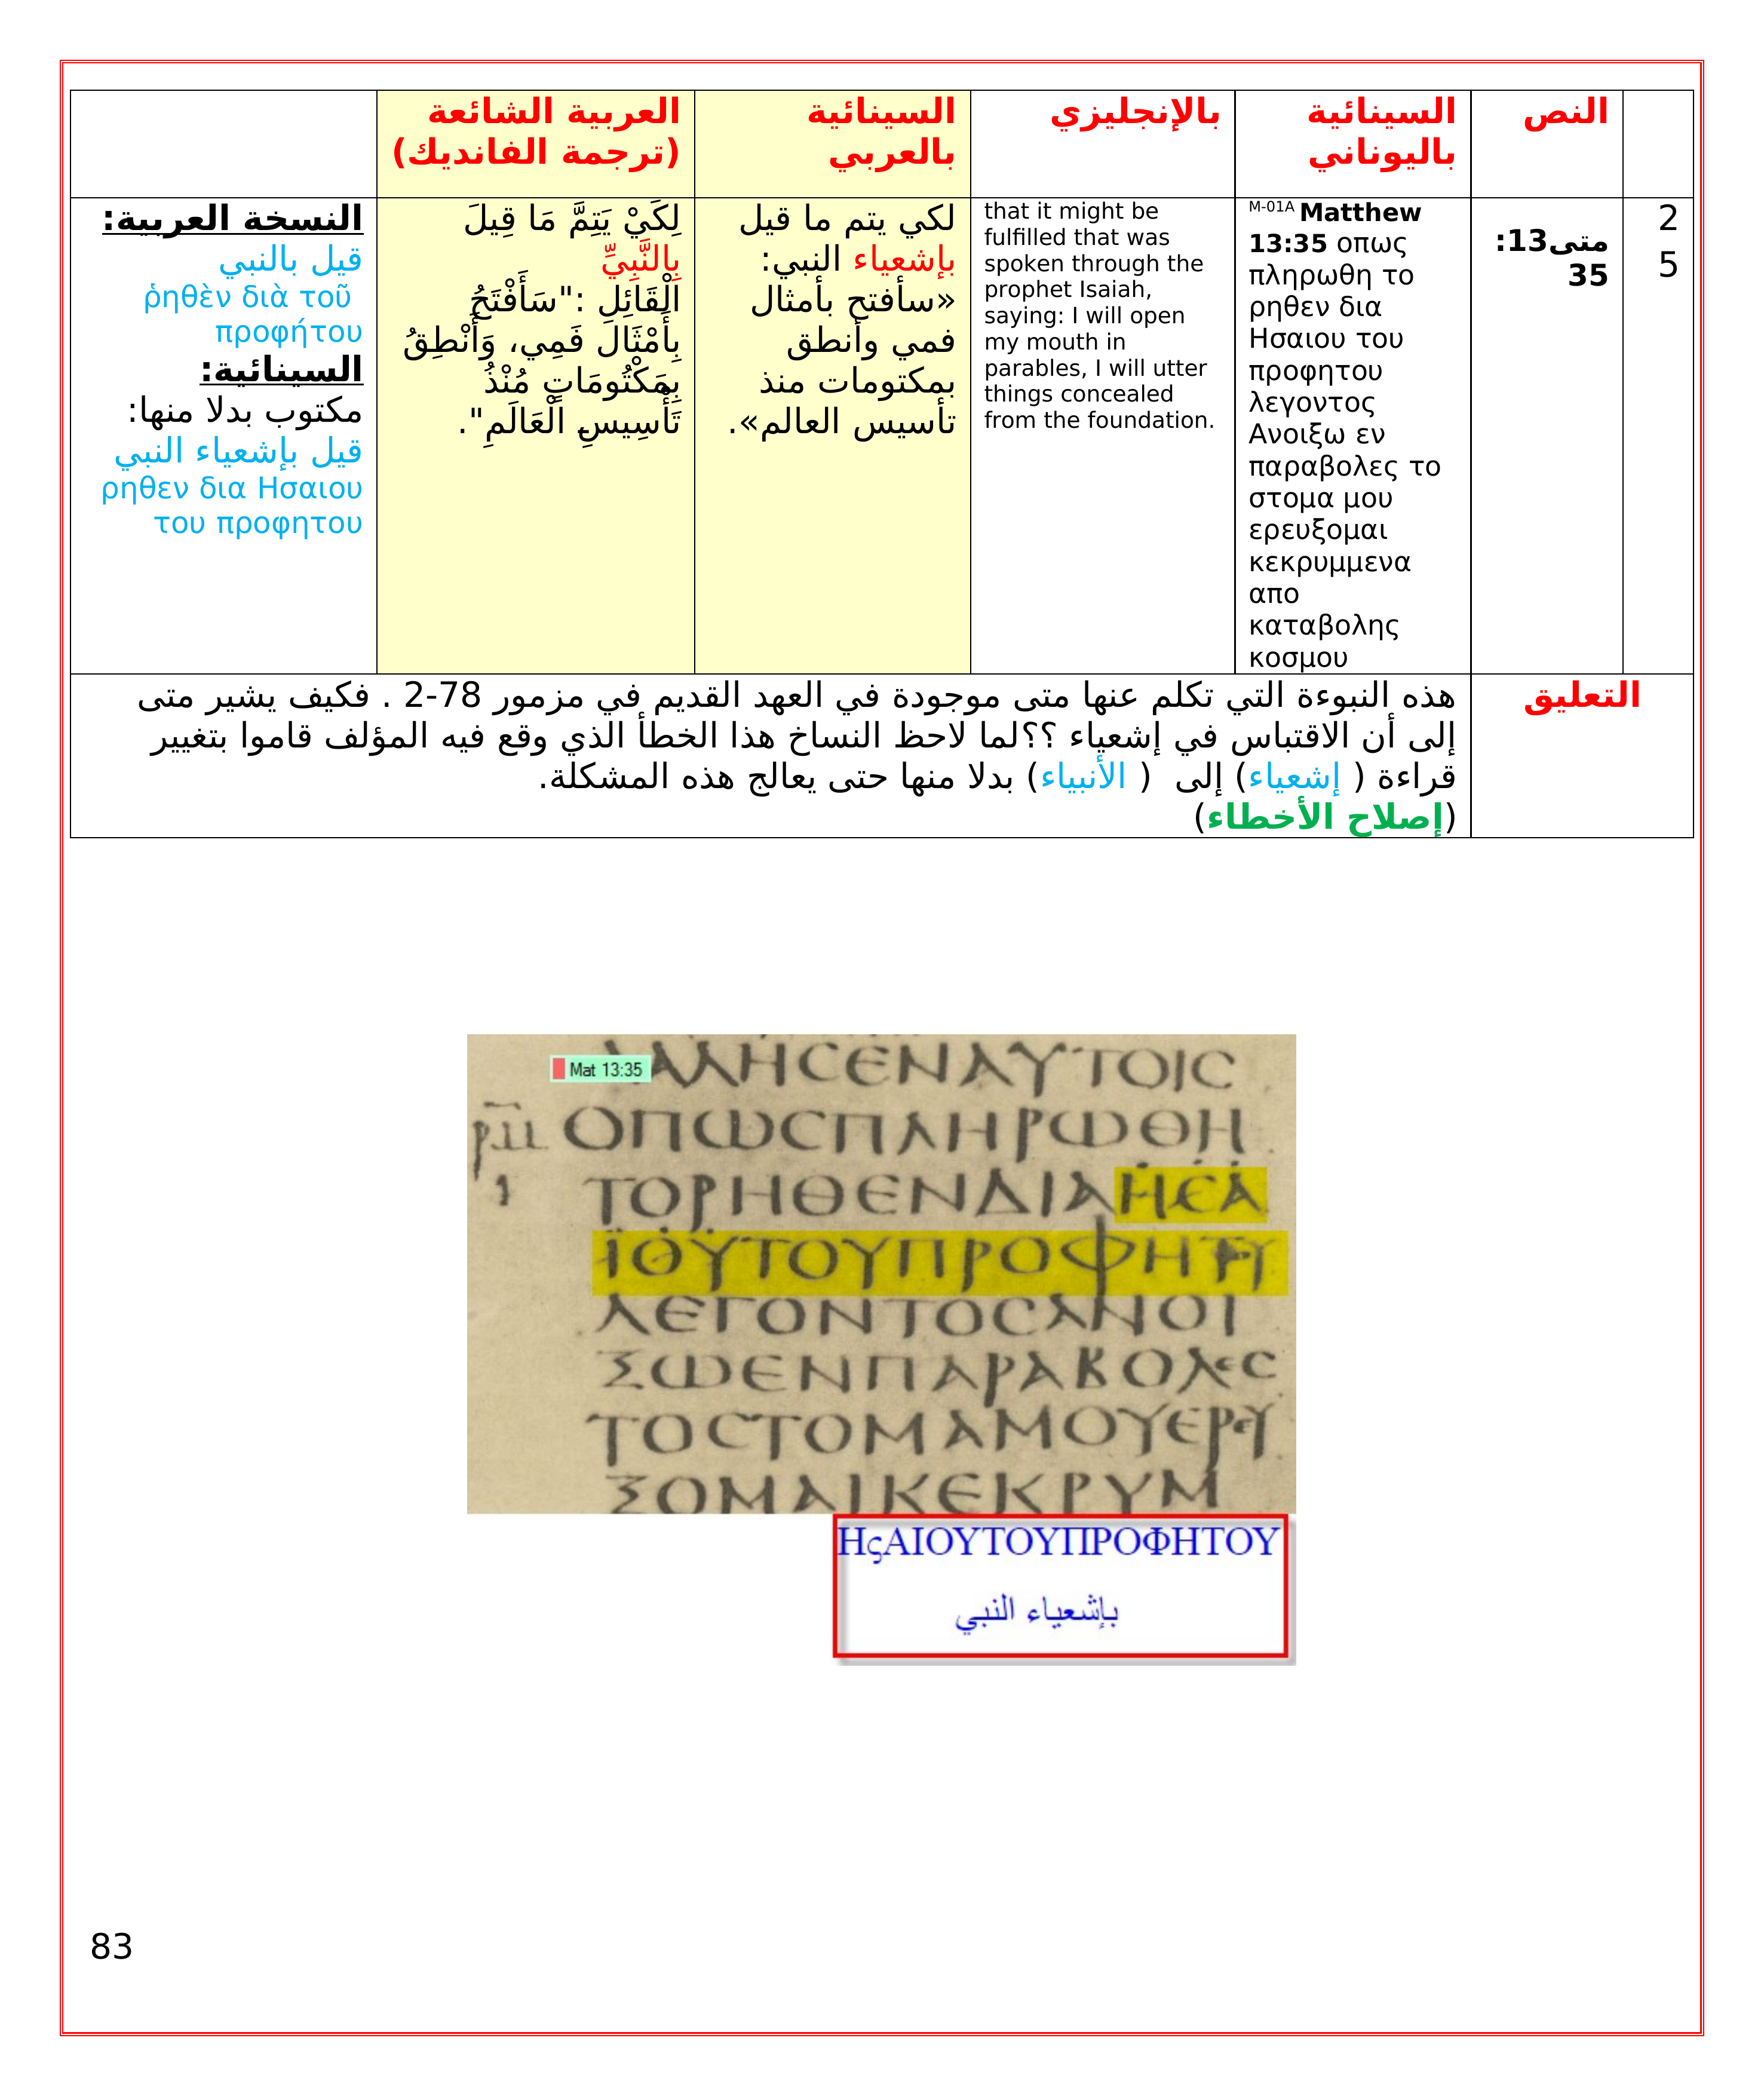 النص
السينائية
باليوناني
بالإنجليزي
السينائية
بالعربي
العربية الشائعة
(ترجمة الفانديك)
2
5
متى13:
35
M-01A Matthew
13:35 οπως
πληρωθη το
ρηθεν δια
Ησαιου του
προφητου
λεγοντος
Ανοιξω εν
παραβολες το
στομα μου
ερευξομαι
κεκρυμμενα
απο
καταβολης
κοσμου
that it might be
fulfilled that was
spoken through the
prophet Isaiah,
saying: I will open
my mouth in
parables, I will utter
things concealed
from the foundation.
لكي يتم ما قيل
بإشعياء النبي:
«سأفتح بأمثال
فمي وأنطق
بمكتومات منذ
تأسيس العالم».
لِكَيْ يَتِمَّ مَا قِيلَ
بِالنَّبِيِّ
الْقَائِلِ :"سَأَفْتَحُ
بِأَمْثَال فَمِي، وَأَنْطِقُ
بِمَكْتُومَاتٍ مُنْذُ
تَأْسِيسِ الْعَالَمِ".
النسخة العربية:
قيل بالنبي
ῥηθὲν διὰ τοῦ
προφήτου
السينائية:
مكتوب بدلا منها:
قيل بإشعياء النبي
ρηθεν δια Ησαιου
του προφητου
التعليق
هذه النبوءة التي تكلم عنها متى موجودة في العهد القديم في مزمور 78-2 . فكيف يشير متى
إلى أن الاقتباس في إشعياء ؟؟لما لاحظ النساخ هذا الخطأ الذي وقع فيه المؤلف قاموا بتغيير
قراءة ( إشعياء) إلى ( الأنبياء) بدلا منها حتى يعالج هذه المشكلة.
(إصلاح الأخطاء)
Mat 13:35
ΛΑΛΗCΕΝΑΥΤΟΙC
ΟΠΩCΠΛΗΡΩΘΗ
ΤΟΡΗΘΕΝΔΙΑΗCΑ
ΪΟΥΤΟΥΠΡΟΦΗΤΟΥ
ΛΕΓΟΝΤΟCΑΝΟΙ
ΞΩΕΝΠΑΡΑΒΟΛΕC
ΤΟCΤΟΜΑΜΟΥΕΡΕΥ
ΞΟΜΑΙΚΕΚΡΥΜ
ΗςΑΙΟΥΤΟΥΠΡΟΦΗΤΟΥ
بإشعياء النبي
83